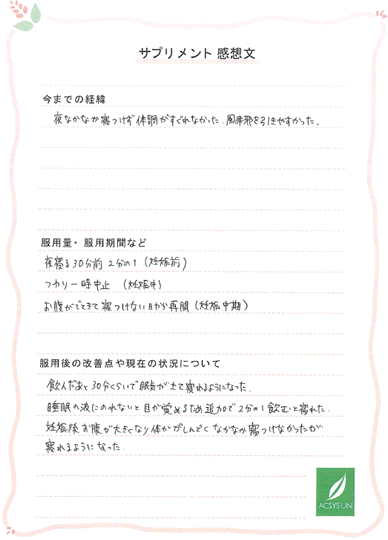 サプリメント 感想文
今までの経緯
夜なかなか寝つけず体調がすぐれなかった。風邪を引きやすかった。
服用量・服用期間など
夜寝る30分前 2分の1 (妊娠前)
つわり一時中止 (妊娠中)
お腹がでてきて寝つけない日から再開 (妊娠中期)
服用後の改善点や現在の状況について
飲んだあと30分くらいで眠気がきて寝れるようになった。
睡眠の波にのれないと目が覚めるため追加で2分の1飲むと寝れた。
妊娠後お腹が大きくなり体がしんどくなかなか寝つけなかったが
寝れるようになった。
ACSYSUN